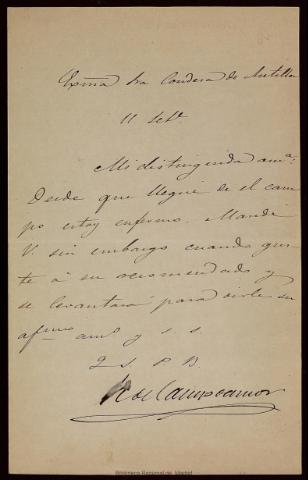 Exmª Sra Condesa de Antillon
11 Sete
Mi distinguida amª:
Desde que llegué de el cam
po estoy enfermo. Mande
V. sin embargo cuando gus
te á su recomendado y
se levantará para oirle su
afmo amº y s. s.
Q S P B.
R de Campoamor
Biblioteca Nacional de Madrid